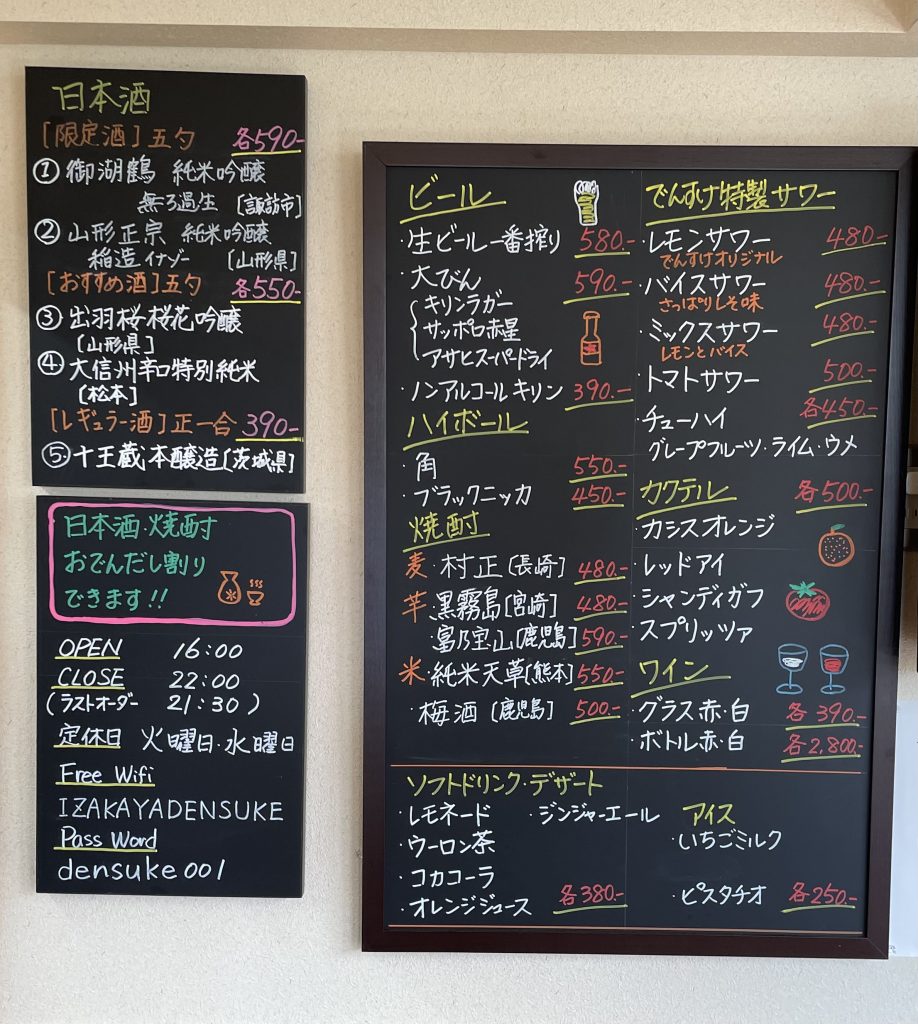 日本酒
[限定酒]五勺 各590-
① 御湖鶴 純米吟醸
無ろ過生 [諏訪市]
② 山形正宗 純米吟醸
稲造イナゾー [山形県]
[おすすめ酒]五勺 各550-
③ 出羽桜桜花吟醸
[山形県]
④ 大信州辛口特別純米
[松本]
[レギュラー酒]正一合 390-
⑤・十王蔵本醸造[茨城県]
日本酒・焼酎
おでんだし割り
できます!!
OPEN 16:00
CLOSE 22:00
(ラストオーダー 21:30)
定休日 火曜日・水曜日
Free Wifi
IZAKAYADENSUKE
Pass Word
densuke001
ビール
・生ビール一番搾り 580.-
・大びん 590.-
キリンラガー
サッポロ赤星
アサヒスーパードライ
・ノンアルコールキリン 390.-
ハイボール
・角 550.-
・ブラックニッカ 450.-
焼酎
麦・村正[長崎] 480.-
芋・黒霧島[宮崎] 480.-
・富乃宝山[鹿児島] 590.-
米・純米天草[熊本] 550.-
・梅酒[鹿児島] 500.-
でんすけ特製サワー
・レモンサワー 480.-
でんすけオリジナル
・バイスサワー 480.-
さっぱりしそ味
・ミックスサワー 480.-
レモンとバイス
・トマトサワー 500.-
・チューハイ 各450.-
グレープフルーツ・ライム・ウメ
カクテル 各500.-
・カシスオレンジ
・レッドアイ
・シャンディガフ
・スプリッツァ
ワイン
・グラス赤・白 各390.-
・ボトル赤・白 各2,800.-
ソフトドリンク・デザート
・レモネード ・ジンジャーエール
・ウーロン茶
・コカコーラ
・オレンジジュース 各380.-
アイス
・いちごミルク
・ピスタチオ 各250.-